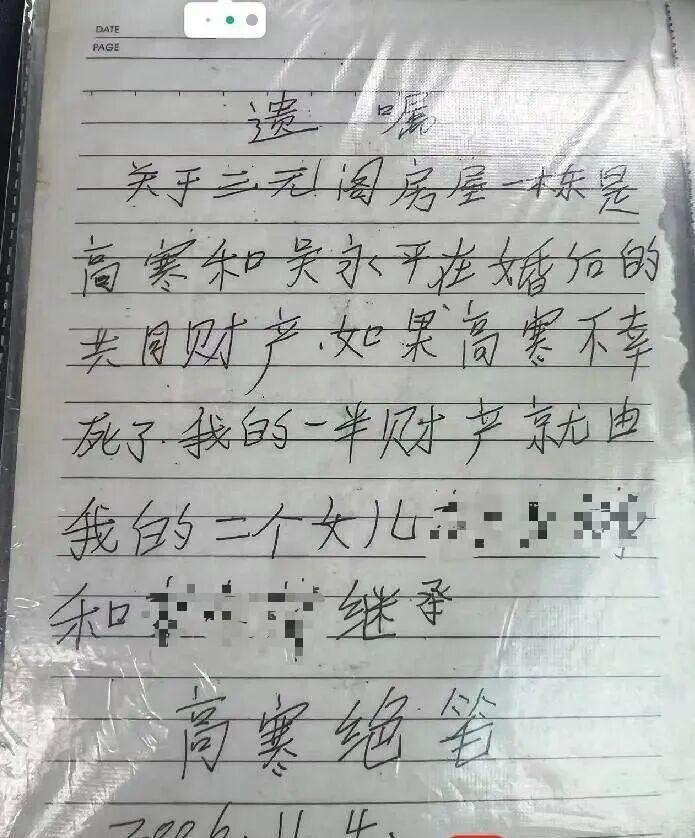 DATE
PAGE
遗嘱
关于三元阁房屋一栋是
高寒和吴永平在婚后的
共同财产.如果高寒不幸
死了.我的一半财产就由
我的二个女儿
和 继承
高寒绝笔
2006.11.4.